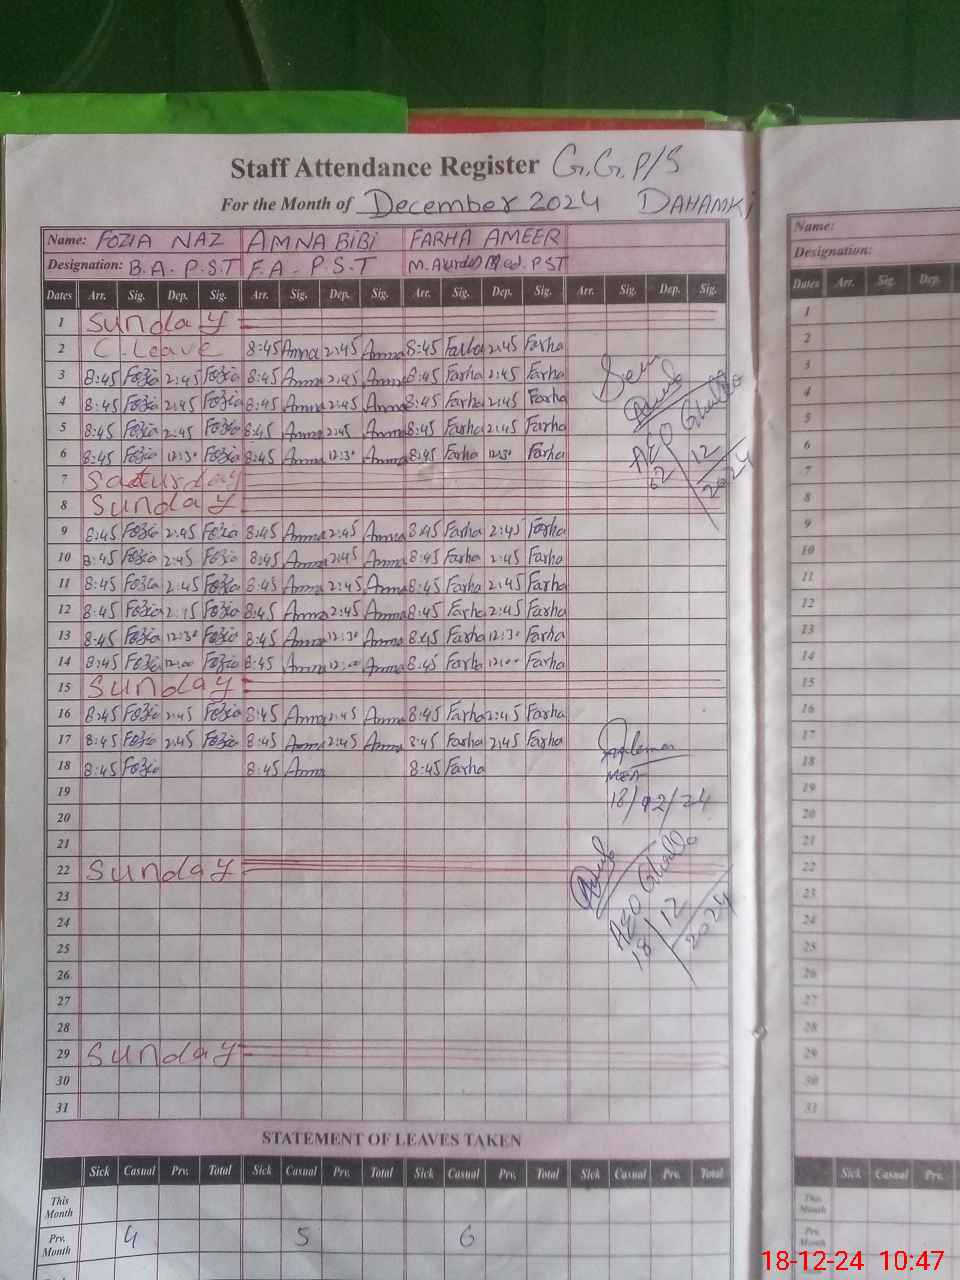 Staff Attendance Register G.G.P/S
For the Month of December 2024 DAHAMKI
Name: FOZIA NAZ AMNA BIBI FARHA AMEER
Designation: B.A. P.S.T F.A - P.S.T M.A M.ed. PST
Dates Arr. Sig. Dep. Sig. Arr. Sig. Dep. Sig. Arr. Sig. Dep. Sig. Arr. Sig. Dep. Sig.
1 Sunday
2 C. Leave 8:45 Amna 2:45 Amna 8:45 Farha 2:45 Farha
3 8:45 Fozia 2:45 Fozia 8:45 Amna 2:45 Amna 8:45 Farha 2:45 Farha
4 8:45 Fozia 2:45 Fozia 8:45 Amna 2:45 Amna 8:45 Farha 2:45 Farha
5 8:45 Fozia 2:45 Fozia 8:45 Amna 2:45 Amna 8:45 Farha 2:45 Farha
6 8:45 Fozia 12:30 Fozia 8:45 Amna 12:30 Amna 8:45 Farha 12:30 Farha
7 Saturday
8 Sunday
Seen
AEO Ghalla
12
2024
9 8:45 Fozia 2:45 Fozia 8:45 Amna 2:45 Amna 8:45 Farha 2:45 Farha
10 8:45 Fozia 2:45 Fozia 8:45 Amna 2:45 Amna 8:45 Farha 2:45 Farha
11 8:45 Fozia 2:45 Fozia 8:45 Amna 2:45 Amna 8:45 Farha 2:45 Farha
12 8:45 Fozia 2:45 Fozia 8:45 Amna 2:45 Amna 8:45 Farha 2:45 Farha
13 8:45 Fozia 12:30 Fozia 8:45 Amna 12:30 Amna 8:45 Farha 12:30 Farha
14 8:45 Fozia 12:00 Fozia 8:45 Amna 12:00 Amna 8:45 Farha 12:00 Farha
15 Sunday
16 8:45 Fozia 2:45 Fozia 8:45 Amna 2:45 Amna 8:45 Farha 2:45 Farha
17 8:45 Fozia 2:45 Fozia 8:45 Amna 2:45 Amna 8:45 Farha 2:45 Farha
18 8:45 Fozia 8:45 Amna 8:45 Farha
MEA
18/12/24
19
20
21
22 Sunday
AEO Ghalla
18/12
2024
23
24
25
26
27
28
29 Sunday
30
31
STATEMENT OF LEAVES TAKEN
Sick Casual Prv. Total Sick Casual Prv. Total Sick Casual Prv. Total Sick Casual Prv. Total
This Month
Prv. Month 4 5 6
Name:
Designation:
Dates Arr. Sig. Dep.
1
2
3
4
5
6
7
8
9
10
11
12
13
14
15
16
17
18
19
20
21
22
23
24
25
26
27
28
29
30
31
Sick Casual Prv.
This Month
Prv. Month
18-12-24 10:47